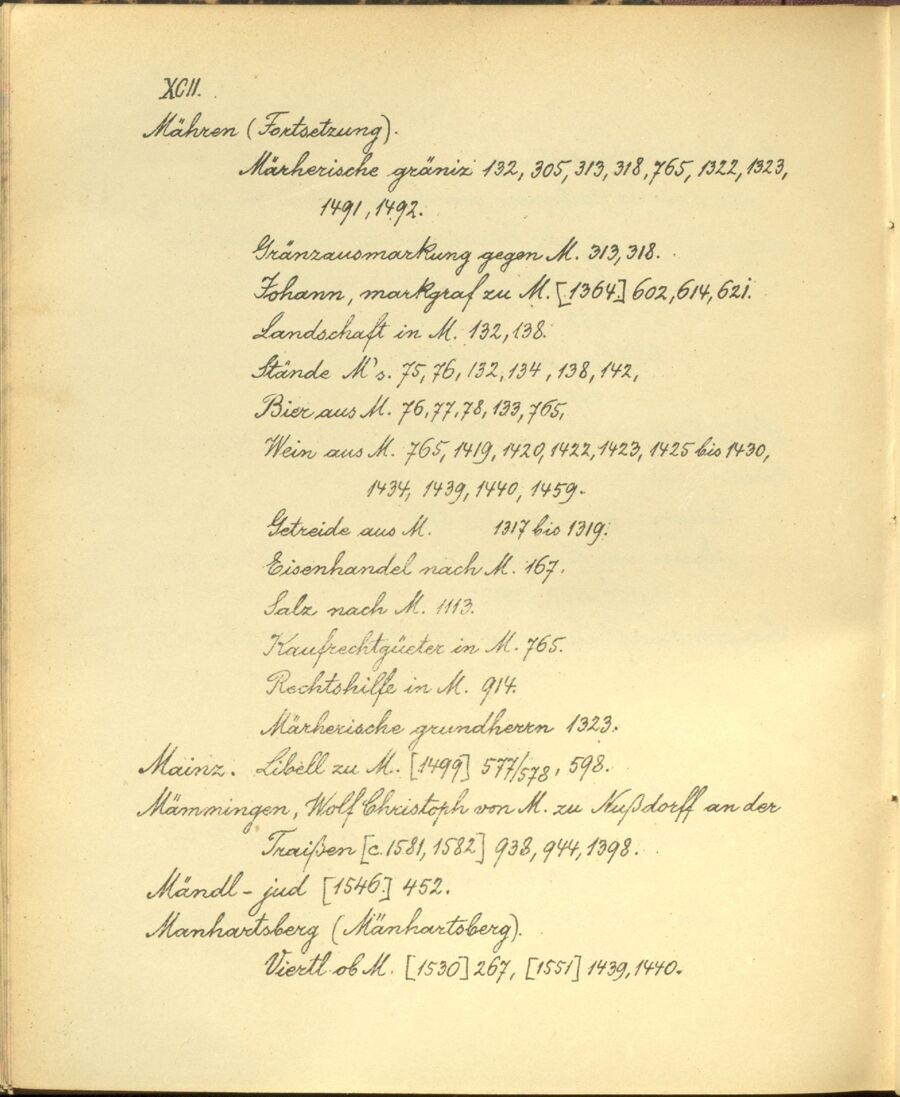 XCII.
Mähren (Fortsetzung).
Märherische gräniz 132, 305, 313, 318, 765, 1322, 1323,
1491, 1492.
Gränzausmarkung gegen M. 313, 318.
Johann, markgraf zu M. [1364] 602, 614, 621.
Landschaft in M. 132, 138.
Stände M's. 75, 76, 132, 134, 138, 142,
Bier aus M. 76, 77, 78, 133, 765,
Wein aus M. 765, 1419, 1420, 1422, 1423, 1425 bis 1430,
1434, 1439, 1440, 1459.
Getreide aus M. 1317 bis 1319.
Eisenhandel nach M. 167.
Salz nach M. 1113.
Kaufrechtgüeter in M. 765.
Rechtshilfe in M. 914.
Märherische grundherrn 1323.
Mainz. Libell zu M. [1499] 577/578, 598.
Mämmingen, Wolf Christoph von M. zu Nußdorff an der
Traißen [c. 1581, 1582] 938, 944, 1398.
Mändl - jud [1546.] 452.
Manhartsberg (Mänhartsberg).
Viertl ob M. [1530] 267, [1551] 1439, 1440.